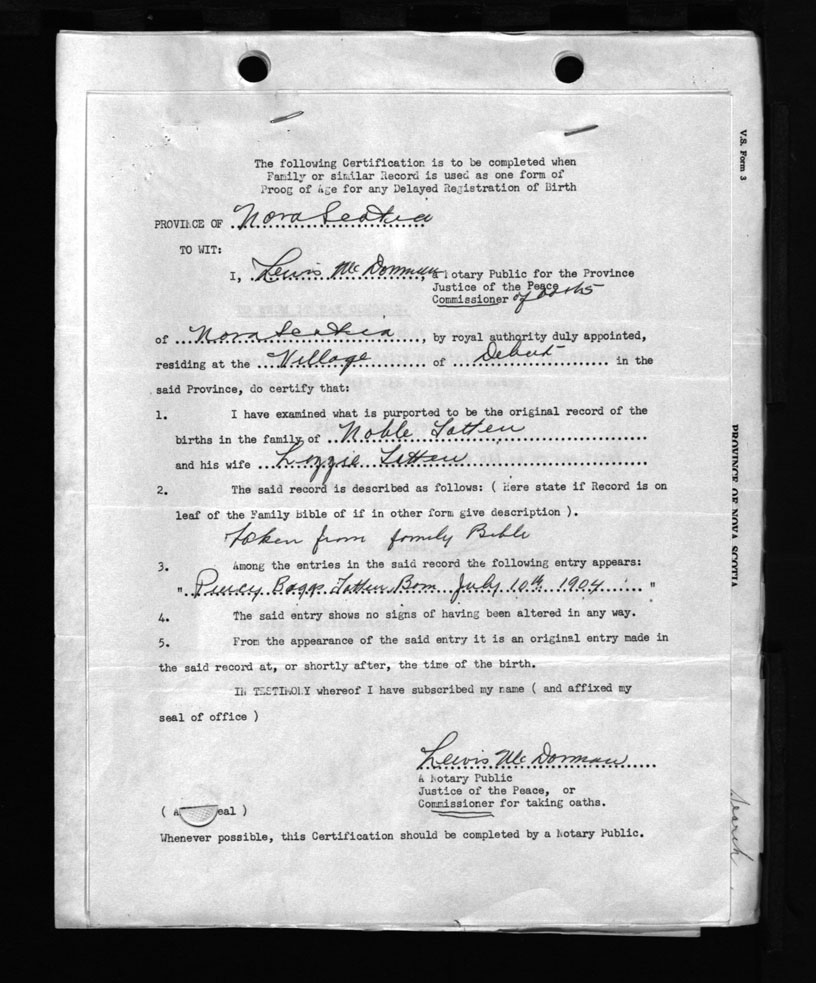 The following Certification is to be completed when
Family or similar Record is used as one form of
Proog of Age for any Delayed Registration of Birth
V.S. Form 3
PROVINCE OF Nova Scotia
TO WIT:
I, Lewis McDorman, a Notary Public for the Province
Justice of the Peace
Commissioner of oaths
of Nova Scotia, by royal authority duly appointed,
residing at the Village of Debert in the
said Province, do certify that:
1. I have examined what is purported to be the original record of the
births in the family of Noble Totten
and his wife Lizzie Totten
2. The said record is described as follows: ( Here state if Record is on
leaf of the Family Bible of if in other form give description ).
Token from family Bible
3. Among the entries in the said record the following entry appears:
" Percy Boggs Totten Born July 10th 1904 "
4. The said entry shows no signs of having been altered in any way.
5. From the appearance of the said entry it is an original entry made in
the said record at, or shortly after, the time of the birth.
IN TESTIMONY whereof I have subscribed my name ( and affixed my
seal of office )
Lewis McDorman
A Notary Public
Justice of the Peace, or
Commissioner for taking oaths.
( A eal )
Whenever possible, this Certification should be completed by a Notary Public.
PROVINCE OF NOVA SCOTIA
Search